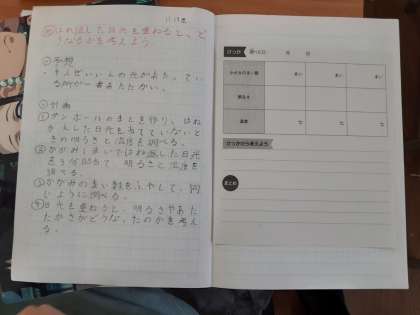 はね返した日光を重ねると、ど
うなるかを考えよう
○予想
○計画
①ダンボールのまとを作り、はね
かえした日光を当てていないと
きの明るさと温度を調べる。
②かがみ1まいではね返した日光
を3分間当て、明るさと温度を
調べる。
③かがみのまい数をふやして、同
じように調べる。
④日光を重ねると、明るさやあた
たかさがどうなったのかを考え
る。
けっか
月 日
かがみのまい数
まい
まい
まい
明るさ
温度
℃
℃
℃
けっかから考えよう
まとめ